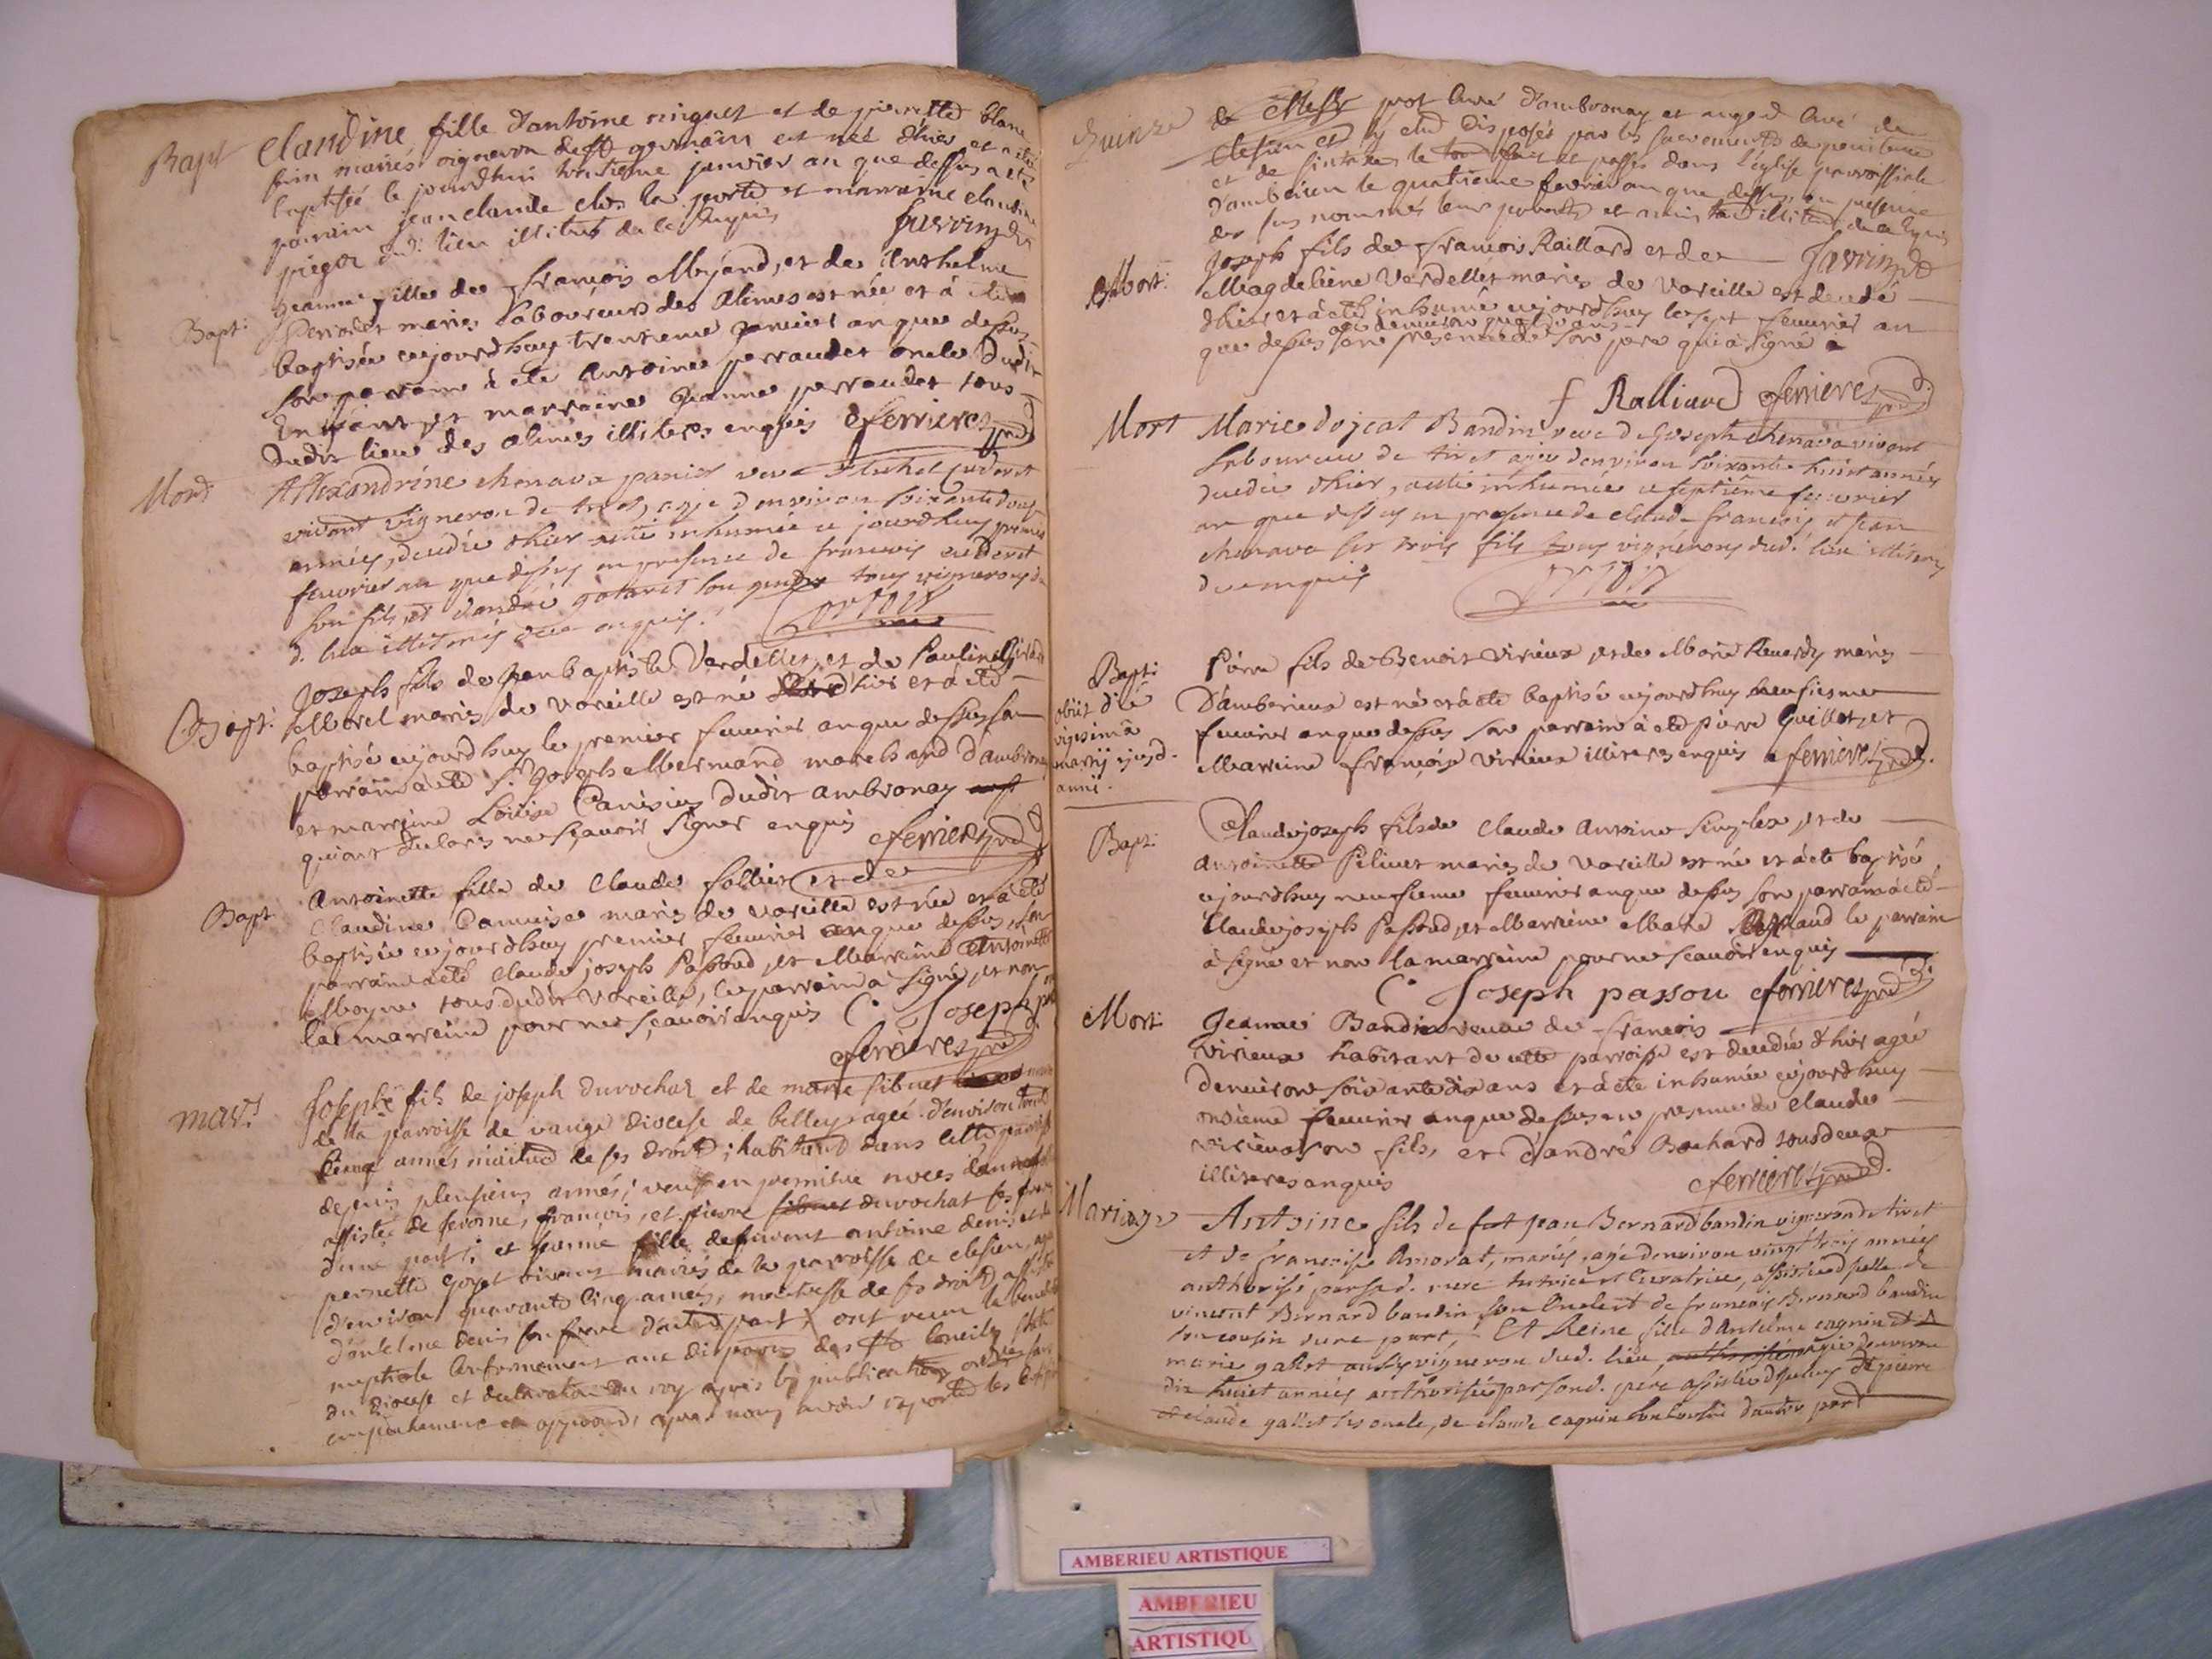 Bapt
Claudine fille d'antoine miguet et de pierrette blanc
mariés vigneron de st germain est née d'hier et a été
baptisée le jourdhui trentieme janvier an que dessus a été
parrain jean claude clos la porte et marraine claudine
dud: lieu illitéré de ce enquis
Bapt:
Jeanne fille de françois Mejand, et de Anthelme
Perraudet mariés laboureurs des Alimes est née et à été
baptisée cejourdhuy trentieme janvier an que dessus
son parrain à eté Antoine perraudet oncle dudit
Enfant, et marraine Jeanne perraudet tous
dudit lieu des alimes illiteres enquis ferrierez prd
Mort
Allexandrine chenava panid veve Michel
vivant vigneron de tiret, agée d'environ soixante douze
années, decedée d'hier a été inhumée ce jourdhuy premier
fevvrier an que dessus en presence de francois
son fils, et d'andré son gendre tous vignerons du
d. lieu illiterés de ce enquis.
Bapt:
Joseph fils de Jean baptiste Verdellet, et de Pauline
Morel mariés de Vareille est né d'hier et à eté
baptisé cejourdhuy le premier fevvrier an que dessus son
parrain à eté Sr. Joseph Mermand marchand d'ambronay
et marreine Loüise dudit ambronay
qui ont declarés ne sçavoir signer enquis ferrierez prd
Bapt
Antoinette fille de Claude follier et de
Claudine mariés de vareille est née et à eté
baptisée cejourdhuy premier fevvrier an que dessus son
parrain à eté Claude joseph Passoud, et Marreine Antoinette
Moyne tous dudit Vareille, le parrain à signé, et non
la marreine pour ne sçavoir enquis C. Joseph
ferrierez prd
mar.
Joseph fils de joseph durochat et de marie sibuet
de la parroisse de vange diocese de belley agée d'environ trente
cinq années maitre de ses droits; habitant dans cette parroisse
depuis plusieurs années; veuf en premiere noces
assisté de jerome, françois, et pierre durochat ses freres
d'une part; et jeanne fille de fuvent antoine denis et de
pernette goyet vivant mariés de la parroisse de clesieu, agée
d'environ quarante cinq années, maitresse de ses droits, assistée
d'antelme denis son frere d'autre part, ont recu la benediction
nuptiale conformement aux dispositions des sts conciles
du diocese et declaration du roy après les publications
empechement ny opposans, apres nous avoir exporté les certificats
quinze
de Messr prot curé d'ambronay et curé de
clesieu et s'y etre disposés par les sacrements de penitence
et le tout fait et passé dans l'église parroissiale
d'ambérieu le quatrieme fevrier an que dessus, en presence
des sus nommés leurs parents et amis illitérés de ce enquis
Mort:
Joseph fils de françois Raillard et de
Magdeleine Verdellet mariés de Vareille est decedé
d'hier et à eté inhumé cejourdhuy le sept fevvrier an
que dessus en presence de son pere qui à signé
f Ralliard ferrierez prd
Mort
Marie dojeat Bandin veve de Joseph chenava vivant
laboureur de tiret agée d'environ soixante huit années
decedée d'hier, a été inhumée ce septième fevvrier
an que dessus en presence de claude francois et jean
chenava ses trois fils tous vignerons dud. lieu illiterés
de ce enquis
Bapt:
obiit die
vigesimâ
martij ejusd.
anni.
Pierre fils de Benoit Virieux, et de Marie Reverdy mariés
d'amberieux est né et à eté baptisé cejourdhuy neufiesme
fevvrier an que dessus son parrain à eté pierre Guillot, et
Marreine françoise Virieux illiteres enquis ferrierez prd.
Bapt:
Claude joseph fils de Claude Antoine Singlex, et de
Antoinette Pelivet mariés de Vareille est né et à eté baptisé
cejourdhuy neufieme fevvrier an que dessus son parrain à eté
Claude joseph Passoud, et Marreine le parrain
à signé et non la marreine pour ne scavoir enquis
C. Joseph passou ferrierez prd
Mort:
Jeanne Bandin veuve de francois
Virieux habitant de cette parroisse est decedée d'hier agée
d'environ soixante dix ans et à eté inhumée cejourdhuy
onzieme fevvrier an que dessus en presence de Claude
Virieux son fils, et d'andré Bouchard tous deux
illiteres enquis ferrierez prd.
Mariage
Antoine fils de fut jean Bernard bandin vigneron de tiret
et de francoise Amorat, mariés, agé d'environ vingt trois années
authorisé par sad. mere tutrice et curatrice, assisté d'jcelle de
vincent Bernard bandin son oncle et de francois Bernard bandin
son cousin d'une part. Et Reine fille d'Antelme cagnin et de
marie gallet vigneron dud. lieu, agée d'environ
dix huict années authorisée par sond. pere assistée d'jceluy de pierre
et claude gallet ses oncle, de claude cagnin son cousin d'autre part
AMBERIEU ARTISTIQUE
AMBERIEU
ARTISTIQU